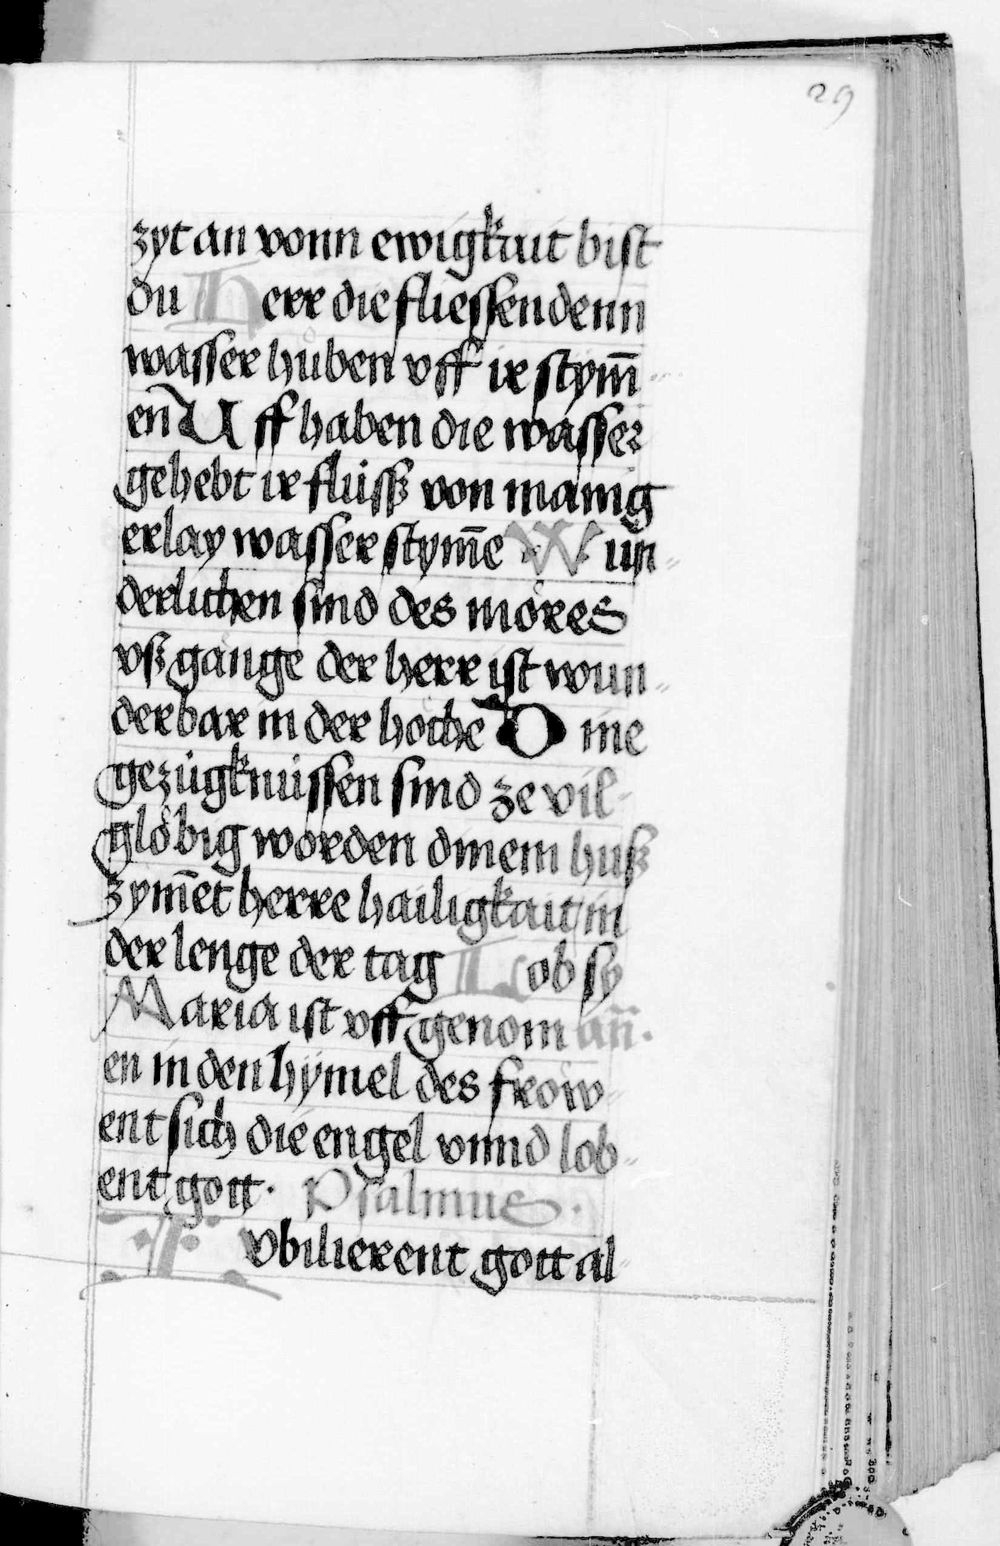 29
zyt an vonn ewigkait bist
du Herr die fliessendenn
wasser hůben vff ir stym̄
en Uff haben die wasser
gehebt ir flüssz von manig
erlay wasser stym̄e Wun
derlichen sind des möres
vsz gänge der herr ist wun
derbar in der höche Dine
gezügknüssen sind ze vil
glöbig worden dinem husz
zym̄et herre hailigkait in
der lenge der tag Lob sy
Maria ist vff genom an̄.
en in den hymel des fröw
ent sich die engel vnnd lob
ent gott. Psalmus.
Ivbilierent gott al